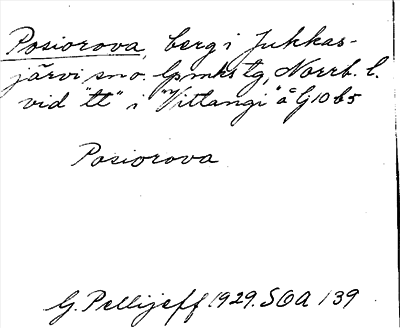 Posiorova, berg i Jukkas-
järvi sno. lpmks tg, Norrb. l.
vid "tt" i "Vittangi" å G10 b5
Posiorova
G. Pellijeff 1929. SOA 139